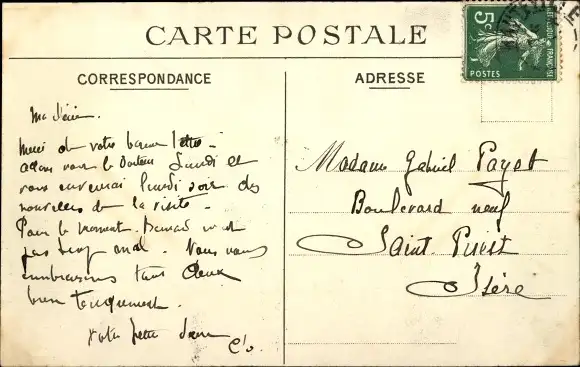 CARTE POSTALE
CORRESPONDANCE
ADRESSE
5c
POSTES
Merci de votre bonne lettre -
allons voir le Docteur Lundi et
vous enverrai lundi soir des
nouvelles de la visite -
Pour le moment, Bernard n'est
pas trop mal. Nous vous
embrassons tous deux
bien tendrement.
votre petite
Madame Gabriel Payot
Boulevard neuf
Saint Priest
Isère